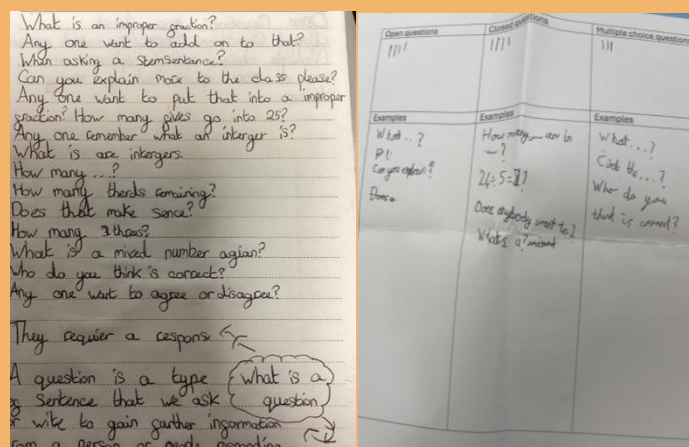 What is an improper fraction?
Any one want to add on to that?
When asking a stemsentance?
Can you explain more to the class please?
Any one want to put that into a improper
fraction? How many fives go into 25?
Any one remember what an interger is?
What is are intergers.
How many ...?
How many therds remaining?
Does that make sence?
How many 3 threes?
What is a mixed number agian?
Who do you think is correct?
Any one want to agree or disagree?
They requier a respons
A question is a type
sentence that we ask
or wite to gain further information
from a person or
What is a
question
Open questions
Closed questions
Multiple choice questions
Examples
What...?
Can you explain?
Does
Examples
How many are in
?
24÷5=
Does anybody want to?
What's a?
Examples
What...?
Circle the...?
Who do you
think is correct?